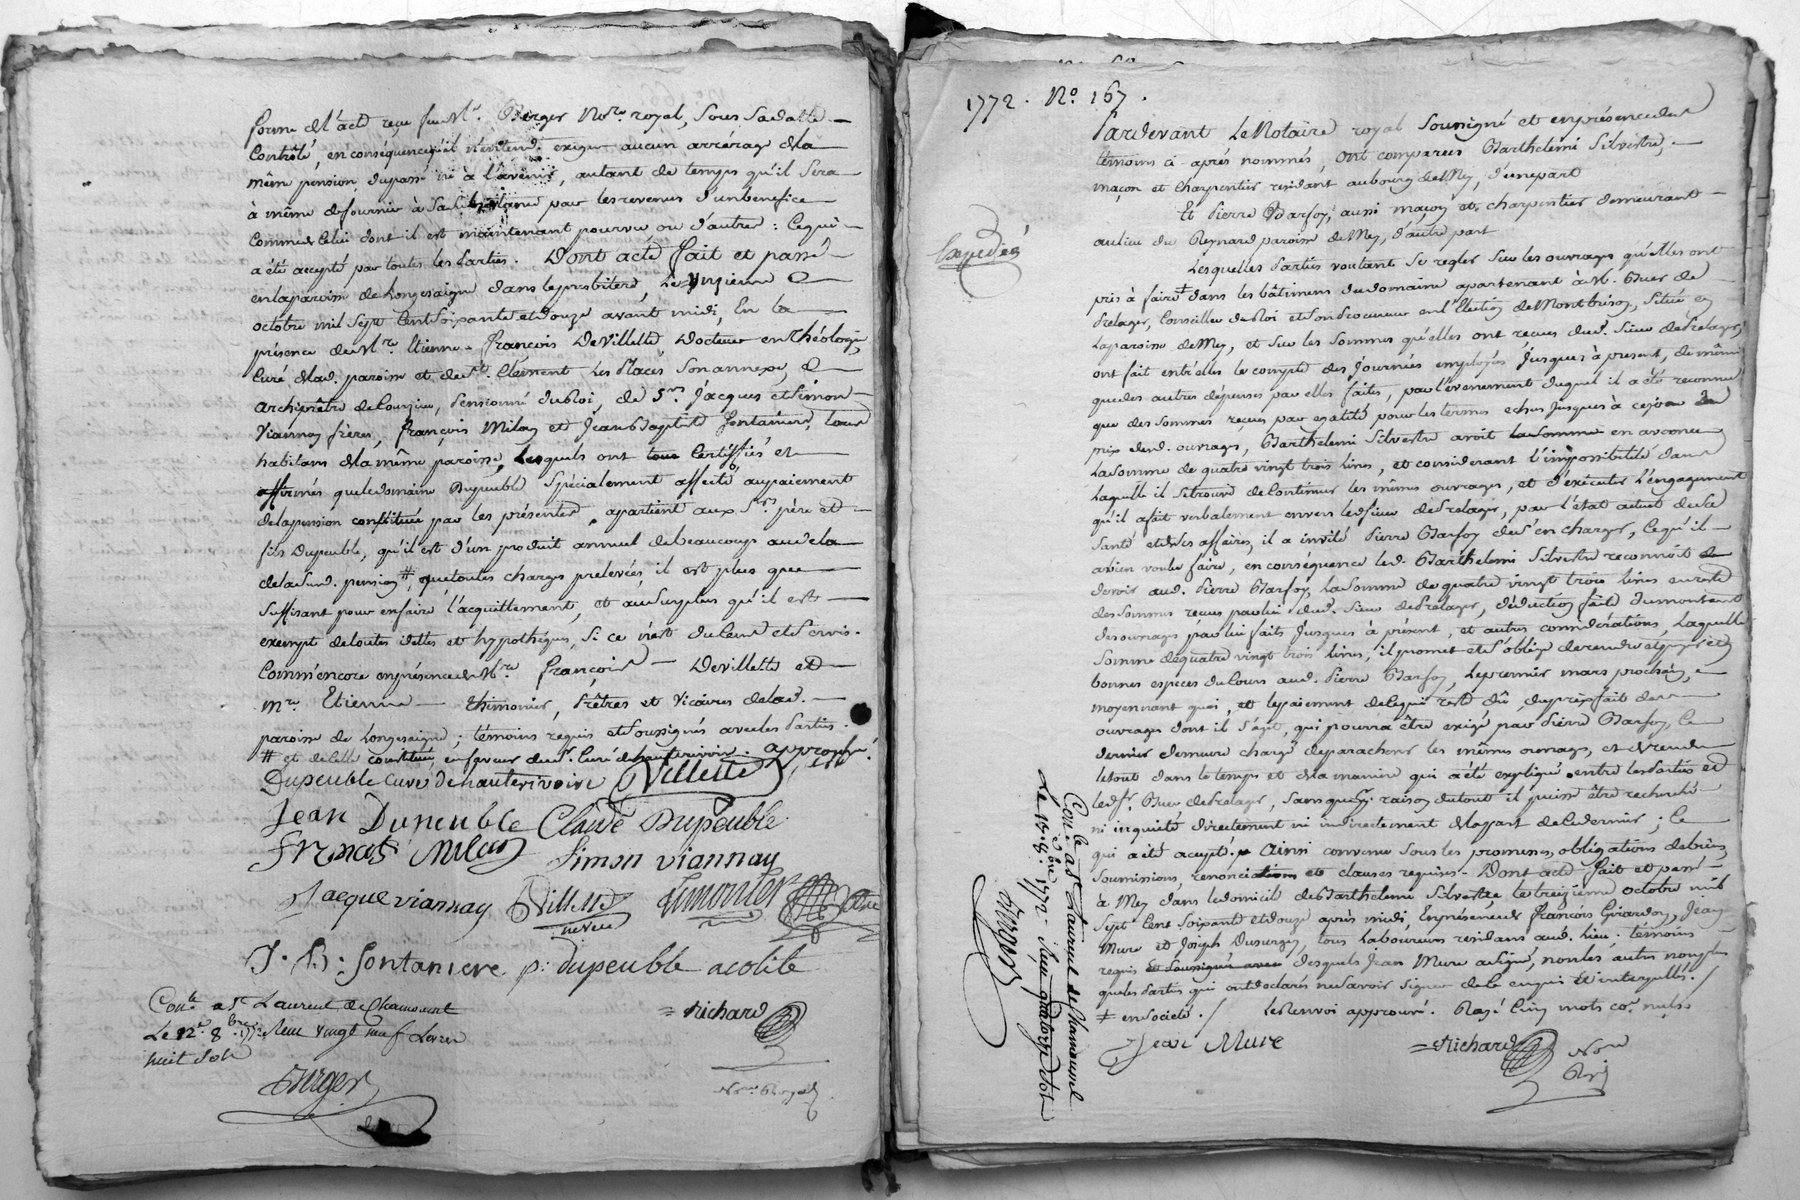 forme de l'acte reçu feu Mr. Berger Nore. royal, sous sa datte
Contrôlé, en conséquence qu'il n'entend exiger aucun arrérage de la
même pension du passé ni à l'avenir, autant de temps qu'il sera
à même de fournir à sa par les revenus d'un benefice
Comme Celui dont il est maintenant pourvu ou d'autre : Ce qui
a été accepté par toutes les Parties. Dont acte fait et passé
en la paroisse de Longesaigne dans le presbitere, Le onzieme
octobre mil sept Cent Soixante et douze avant midi, En la
présence de Mre. Etienne François De Villette Docteur en théologie,
Curé de lad. paroisse et de St. Clément Les Places Son annexe,
archiprêtre de Courzieu, Pensionné du Roi, de Srs. Jacques et Simon
Viannay frères, François Milan et Jean Baptiste fontaniere, tous
habitans de la même paroisse, Lesquels ont tous Certiffiés et
affirmés que le domaine Dupeuble Spécialement affecté au paiement
de la pension constituée par les présentes, apartient aux Srs. père et
fils Dupeuble, qu'il est d'un produit annuel de beaucoup au dela
de la susd. pension # que toutes charges prelevées, il est plus que
suffisant pour en faire l'acquittement, et au Surplus qu'il est
exempt de toutes dettes et hypothéques, Si ce n'est du Cens et Servis.
Comm'encore en présence de Mre. françois Devillette et
mre Etienne thimonier, Prêtres et Vicaires de lad.
paroisse de Longesaigne ; témoins requis et Soussignés avec les Parties.
# et de celle constituée en faveur du Sr. Curé de hauterivoire. approuvé.
Dupeuble Curé de hauterivoire DVillette
Jean Dupeuble Claude Dupeuble
François Milan Simon viannay
Jacque viannay DVillette neveu timonier
J. B. fontaniere p. dupeuble acolite
Conlé a St Laurent de Chamousset
Le 12e 8bre 1772 Reçu vingt neuf Livres
huit Sols
Berger
=Richard
Nore. Royal
1772. No. 167.
Pardevant Le Notaire royal soussigné et en présence des
témoins ci-après nommés, ont comparus Barthelemi Silvestre,
maçon et charpentier résidant au bourg de Mey, d'une part
Et Pierre Barjoy, aussi maçon et charpentier demeurant
au lieu du Reynard paroisse de Mey, d'autre part
Expediée
Lesquelles Parties voulant Se regler Sur les ouvrages qu'elles ont
pris à faire ‡ dans les bâtimens du domaine apartenant à M. Buer de
Prelager, Conseiller du Roi et Son Procureur en l'Election de Montbrison, Situé en
La paroisse de Mey, et Sur les Sommes qu'elles ont reçues dud. Sieur de Prelager,
ont fait entr'elles le compte des Journées employées Jusques à present, de même
que des autres dépenses par elles faites, par l'évenement duquel il a été reconnu
que des sommes reçues par egalité pour les termes echus Jusques à ce jour du
prix desd. ouvrages, Barthelemi Silvestre avoit la somme en avance
La Somme de quatre vingt trois livres, et considerant l'impossibilité dans
Laquelle il Se trouve de Continuer les mêmes ouvrages, et d'exécuter l'engagement
qu'il a fait verbalement envers led. Sieur de Prelager, par l'état actuel de Sa
Santé et de Ses affaires, il a invité Pierre Barjoy de S'en charger, Ce qu'il
a bien voulu faire, en conséquence led. Barthelemi Silvestre reconnoit
devoir aud. Pierre Barjoy, La Somme de quatre vingt trois livres en reste
des Sommes reçues par lui dud. Sieur de Prelager, déduction faite du montant
des ouvrages par lui faits Jusques à présent, et autres considérations, Laquelle
Somme de quatre vingt trois livres, il promet et S'oblige de rendre et payer en
bonnes especes du Cours aud. Pierre Barjoy, Le premier mars prochain,
moyennant quoi, et le paiement de ce qui reste dû, du prix fait des
ouvrages dont il S'agit, qui pourra être exigé par Pierre Barjoy, Ce
dernier demeure chargé de parachever les mêmes ouvrages, et de rendre
le tout dans le temps et de la maniere qui a été expliqué entre les Parties et
led. Sr. Buer de Prelager, Sans que pour raison du tout il puisse être recherché
ni inquiété directement ni indirectement de la part de Ce dernier ; Ce
qui a été accepté. Ainsi convenu Sous les promesses, obligations de biens,
Soumissions, renonciations et clauses requises. Dont acte fait et passé
à Mey dans le domicile de Barthelemi Silvestre, le treizieme octobre mil
Sept Cent Soixante et douze après midi, En présence de François Girardon, Jean
Mure et Joseph Dusurgey, tous Laboureurs résidans aud. Lieu, témoins
requis et Soussignés avec desquels Jean Mure a Signé, non les autres non plus
que les Parties qui ont déclarés ne Savoir Signer de ce enquis et interpellés. /
‡ en Societé. / Le Renvoi approuvé. Rayé Cinq mots co. nuls.
Jean Mure
=Richard Nore Royl
Conlé a St Laurent de Chamousset
Le 15. 8bre 1772. Reçu quatorze sols
Berger